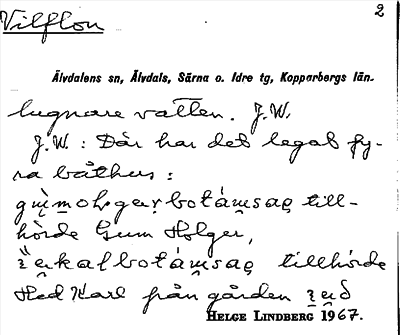 Vilflon
2
Älvdalens sn, Älvdals, Särna o. Idre tg, Kopparbergs län.
lugnare vatten. J.W.
J.W.: Där har det legat fy-
ra båthus:
till-
hörde Gum Holger,
tillhörde
Hed Karl från gården
HELGE LINDBERG 1967.